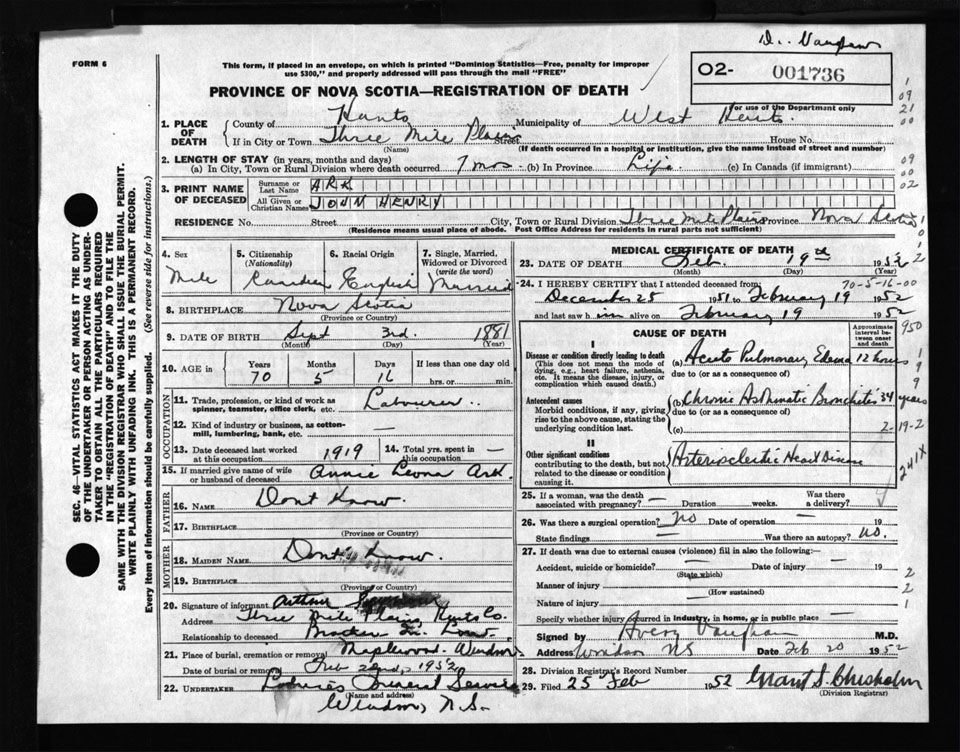 Dr. Vaughan
FORM 6
This form, if placed in an envelope, on which is printed "Dominion Statistics—Free, penalty for improper
use $300," and properly addressed will pass through the mail "FREE"
02- 001736
PROVINCE OF NOVA SCOTIA—REGISTRATION OF DEATH
For use of the Department only
1. PLACE OF DEATH County of Hants Municipality of West Hants
If in City or Town Three Mile Plains Street House No.
(Name) (If death occurred in a hospital or institution, give the name instead of street and number)
2. LENGTH OF STAY (in years, months and days)
(a) In City, Town or Rural Division where death occurred 7 mos (b) In Province Life (c) In Canada (if immigrant)
3. PRINT NAME OF DECEASED Surname or Last Name ARK
All Given or Christian Names JOHN HENRY
RESIDENCE No. Street City, Town or Rural Division Three Mile Plains Province Nova Scotia
(Residence means usual place of abode. Post Office Address for residents in rural parts not sufficient)
SEC. 46—VITAL STATISTICS ACT MAKES IT THE DUTY
OF THE UNDERTAKER OR PERSON ACTING AS UNDER-
TAKER TO OBTAIN ALL THE PARTICULARS REQUIRED
IN THE "REGISTRATION OF DEATH" AND TO FILE THE
SAME WITH THE DIVISION REGISTRAR WHO SHALL ISSUE THE BURIAL PERMIT.
WRITE PLAINLY WITH UNFADING INK. THIS IS A PERMANENT RECORD.
Every item of information should be carefully supplied. (See reverse side for instructions.)
4. Sex Male
5. Citizenship (Nationality) Canadian
6. Racial Origin English
7. Single, Married, Widowed or Divorced (write the word) Married
8. BIRTHPLACE Nova Scotia
(Province or Country)
9. DATE OF BIRTH Sept 3rd. 1881
(Month) (Day) (Year)
10. AGE in Years 70 Months 5 Days 16 If less than one day old hrs. or min.
OCCUPATION
11. Trade, profession, or kind of work as
spinner, teamster, office clerk, etc. Labourer
12. Kind of industry or business, as cotton-
mill, lumbering, bank, etc. —
13. Date deceased last worked at this occupation 1919 14. Total yrs. spent in this occupation —
15. If married give name of wife or husband of deceased Annie Leona Ark
FATHER
16. NAME Dont Know.
17. BIRTHPLACE
(Province or Country)
MOTHER
18. MAIDEN NAME Dont Know.
19. BIRTHPLACE
(Province or Country)
20. Signature of informant Arthur
Address Three Mile Plains, Hants Co.
Relationship to deceased Brother In Law.
21. Place of burial, cremation or removal Maplewood. Windsor
Date of burial or removal Feb 22nd, 1952
22. UNDERTAKER Funeral Service
(Name and address)
Windsor, N.S.
MEDICAL CERTIFICATE OF DEATH
23. DATE OF DEATH Feb. 19th 1952
(Month) (Day) (Year)
70-5-16-00
24. I HEREBY CERTIFY that I attended deceased from
December 25 1951 to February 19 1952
and last saw him alive on February 19 1952
CAUSE OF DEATH
Approximate interval between onset and death
I
Disease or condition directly leading to death
(This does not mean the mode of
dying, e.g., heart failure, asthenia,
etc. It means the disease, injury, or
complication which caused death.)
(a) Acute Pulmonary Edema 12 hours
due to (or as a consequence of)
Antecedent causes
Morbid conditions, if any, giving
rise to the above cause, stating the
underlying condition last.
(b) Chronic Asthmatic Bronchitis 34 years
due to (or as a consequence of)
(c) 2-19-2
II
Other significant conditions
contributing to the death, but not
related to the disease or condition
causing it.
Arteriosclerotic Heart Disease
241X
25. If a woman, was the death associated with pregnancy? — Duration weeks. Was there a delivery?
26. Was there a surgical operation? no Date of operation — 19
State findings — Was there an autopsy? no.
27. If death was due to external causes (violence) fill in also the following:—
Accident, suicide or homicide? — Date of injury — 19
(State which)
Manner of injury —
(How sustained)
Nature of injury —
Specify whether injury occurred in industry, in home, or in public place —
Signed by Avery Vaughan M.D.
Address Windsor NS Date Feb 20 1952
28. Division Registrar's Record Number
29. Filed 25 Feb 1952 Grant S. Chisholm
(Division Registrar)